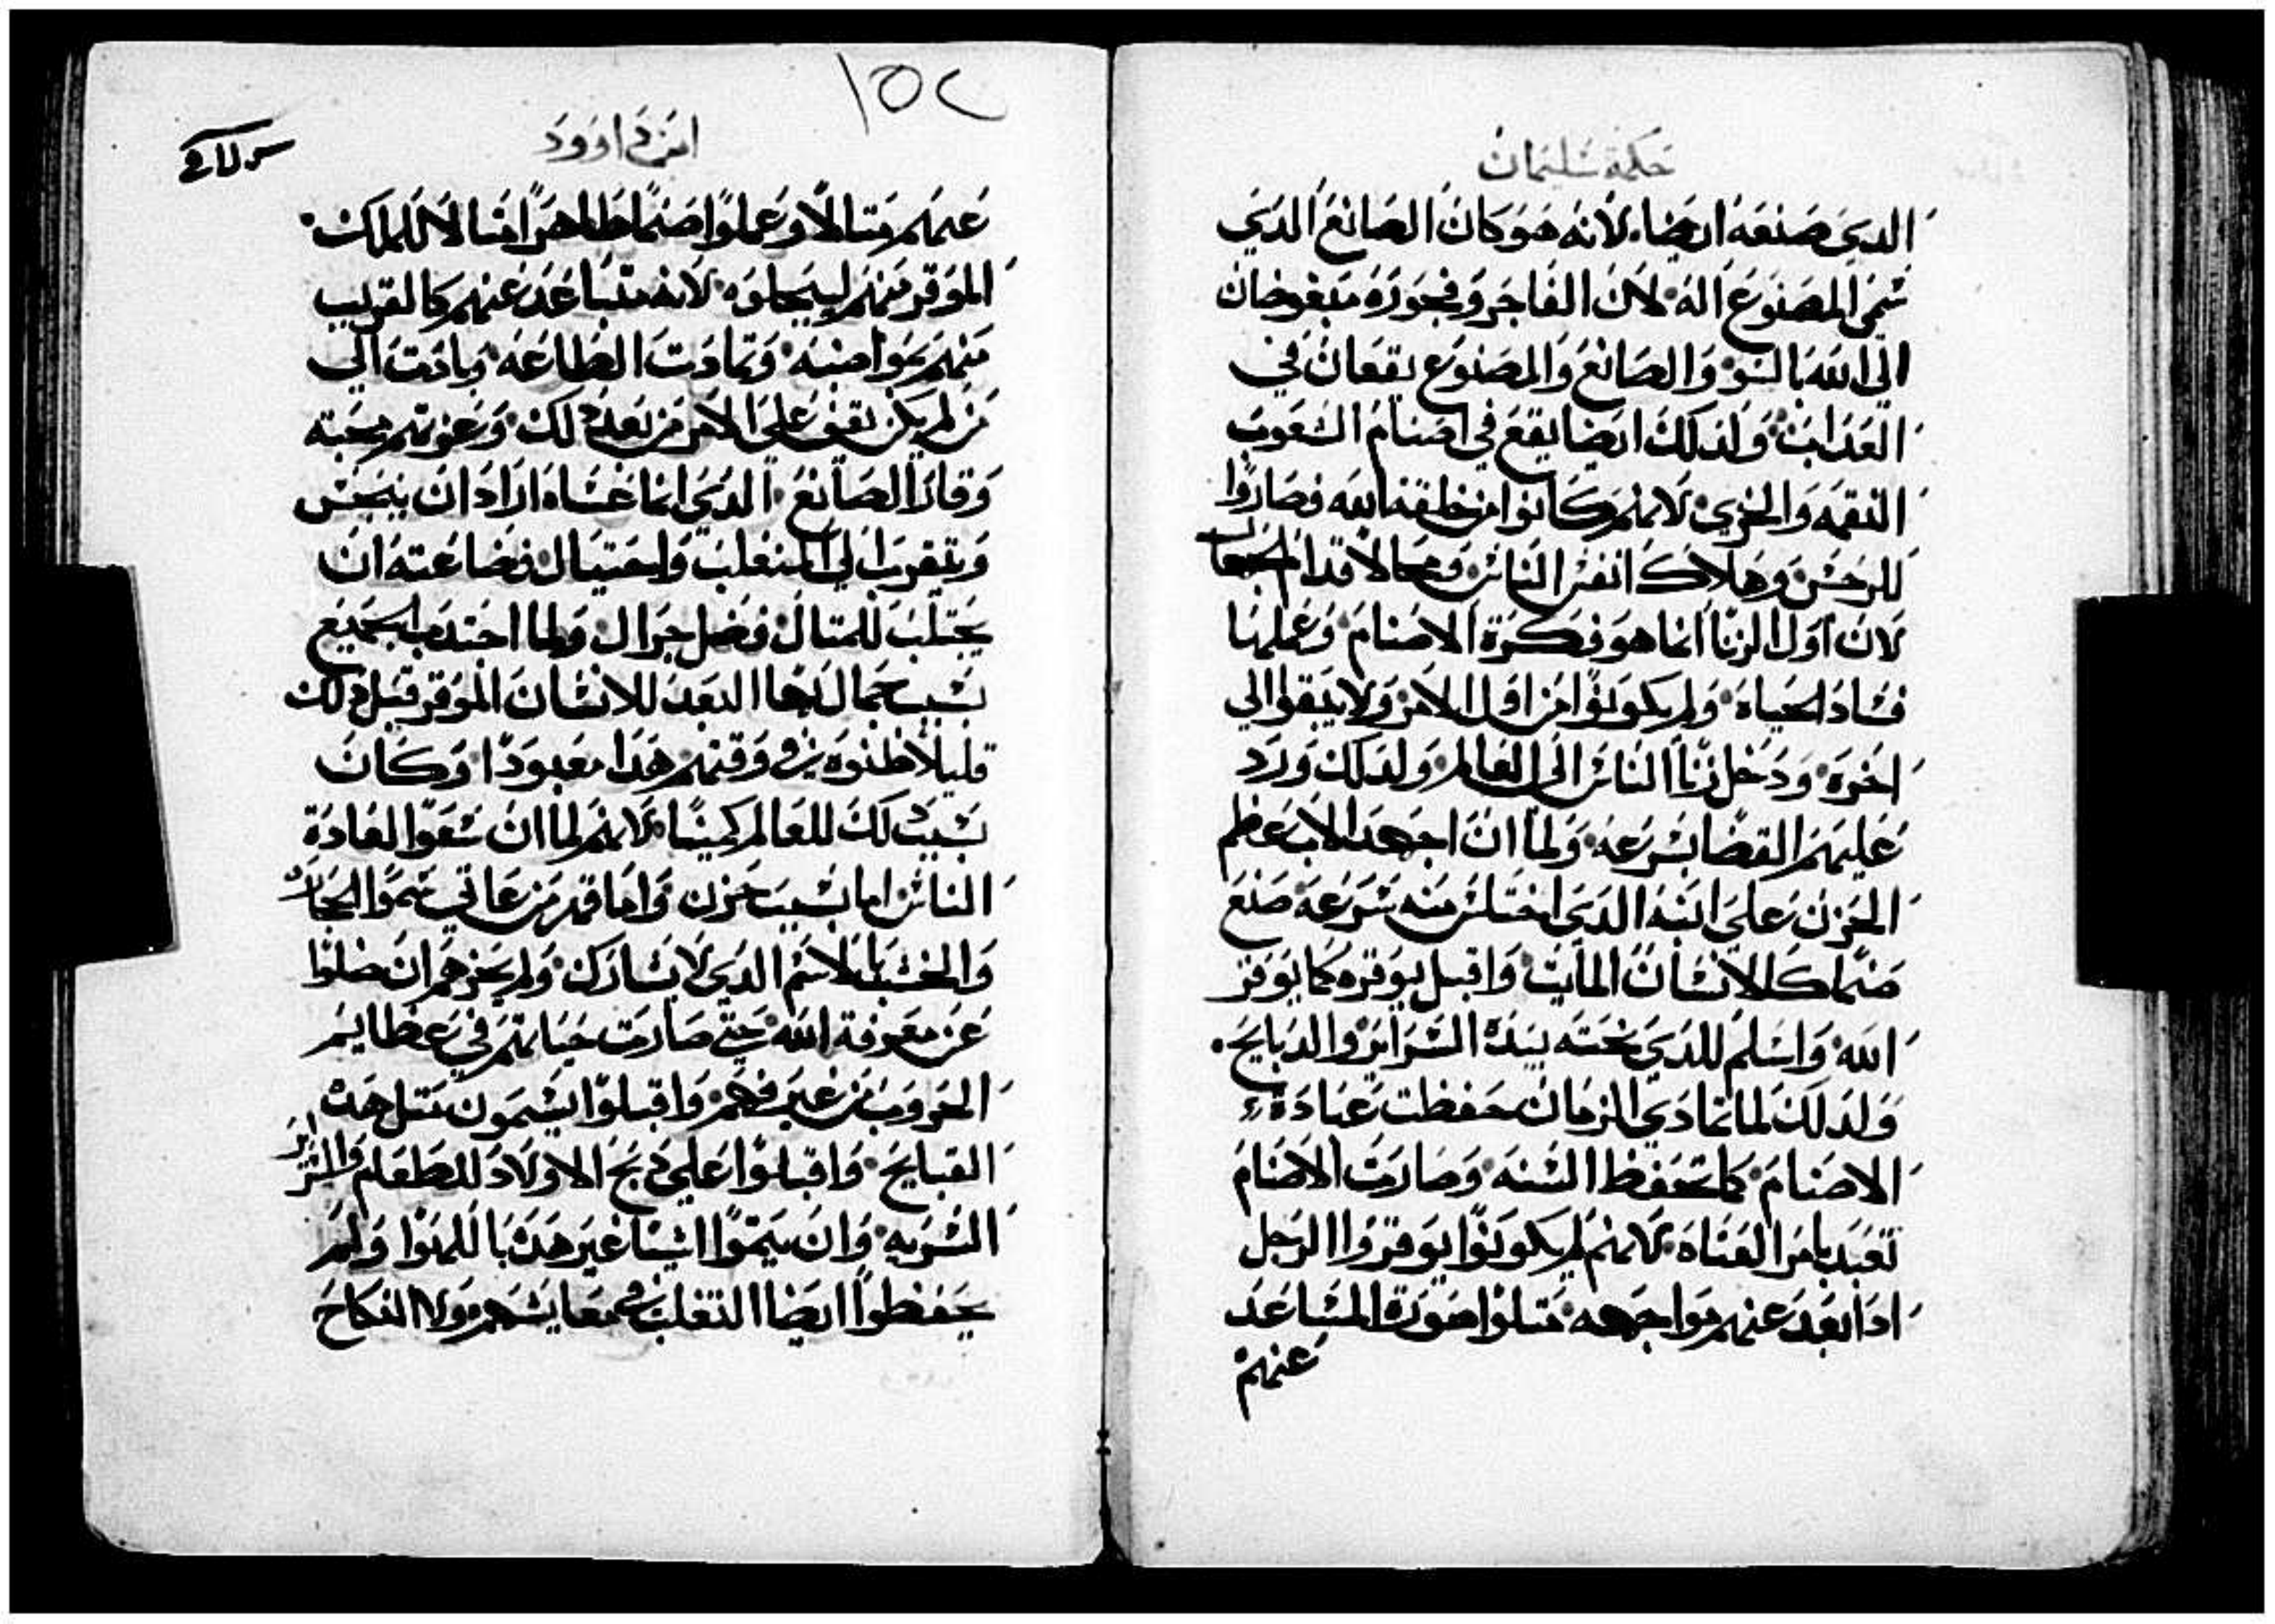 حكمة سليمان
الدي صنعه ايضا لانه هو كان الصانع الدي
سمى المصنوع اله لان الفاجر وفجوره مبغوضان
الى الله بالسو والصانع والمصنوع يقعان في
العداب ولدلك ايضا يقع في اصنام الشعوب
النقمه والخزي لانهم كانوا من خلقة الله فصاروا
للرجس وهلاك انفس الناس وفخا لاقدام الجهال
لان اول الزنا انما هو فكرة الاصنام وعملها
فساد الحياة ولم يكونوا من اول الامر ولا يبقوا الي
اخره ودخل زنا الناس الى العالم ولدلك ورد
عليهم القضا بسرعه ولما ان اجهد الاب عظم
الحزن على ابنه الدي اختلس منه سرعه صنع
صنما كالانسان المايت واقبل يوقره كما يوقر
الله واسلم للدي تحته بيده السراير والدبايح
ولدلك لما تمادي الزمان حفظت عبادة
الاصنام كما تحفظ السنه وصارت الاصنام
تعبد بامر العتاه لانهم لم يكونوا يوقروا الرجل
ادا بعد عنهم مواجهه متلوا صورة المتباعد
عنهم
١٥٢
ابن داوود
عنهم متالا وعملوا صنما ظاهرا متالا للملك
الموقر منهم ليبجلوه لانه متباعد عنهم كالقريب
منهم بمواضبه وتمادت الطاعه وبادت الي
من لم يكن يقف على الامر من بعد دلك وغرتهم محبته
وقال الصانع الدي انما عساه اراد ان يحسن
ويتقرب الي المتغلب واحتيال فضاعته ان
يجتلب للمتال فضل جزال ولما اجتدب الجميع
بسبب جمال هدا البعد للانسان الموقر قبل دلك
قليلا ظنوه في وقتهم هدا معبودا وكان
بسبب دلك للعالم كمينا لانهم لما ان سعوا لعادة
الناس اما بسبب حزن واما قهر من عاتي سموا الحجارة
والخشب بالاسم الدي لا يشارك ولم يجزهم ان ضلوا
عن معرفة الله حتى صارت حياتهم في عظايم
الحروب من غير فهم واقبلوا يسمون متل هده
القبايح واقبلوا على دبح الاولاد للطعام والسراير
السريه وان يتموا اشيا غير هده باللهوا ولم
يحفظوا ايضا التغلب في معايشهم ولا النكاح